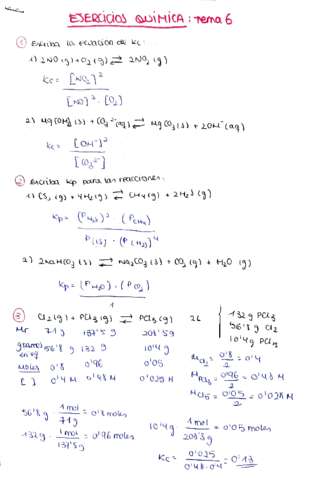 EJERCICIOS QUÍMICA: tema 6
① Escriba la ecuación de Kc:
1) 2NO(g) + O₂(g) ⇄ 2NO₂(g)
Kc = [NO₂]² / [NO]² · [O₂]
2) Mg(OH)₂(s) + CO₃²⁻(aq) ⇄ MgCO₃(s) + 2OH⁻(aq)
Kc = [OH⁻]² / [CO₃²⁻]
② Escriba Kp para las reacciones:
1) CS₂(g) + 4H₂(g) ⇄ CH₄(g) + 2H₂S(g)
Kp = (P H₂S)² · (P CH₄) / P CS₂ · (P H₂)⁴
2) 2NaHCO₃(s) ⇄ Na₂CO₃(s) + CO₂(g) + H₂O(g)
Kp = (P H₂O) · (P CO₂) / 1
③ Cl₂(g) + PCl₃(g) ⇄ PCl₅(g) 2L { 132g PCl₃
56'8g Cl₂
10'4g PCl₅
Mr 71g 137'5g 208'5g
gramos en eq 56'8g 132g 10'4g
moles 0'8 0'96 0'05
[ ] 0'4M 0'48M 0'025M
M Cl₂ = 0'8 / 2 = 0'4
M PCl₃ = 0'96 / 2 = 0'48M
M PCl₅ = 0'05 / 2 = 0'025M
56'8g · 1mol / 71g = 0'8 moles
132g · 1mol / 137'5g = 0'96 moles
10'4g · 1mol / 208'5g = 0'05 moles
Kc = 0'025 / 0'48·0'4 = 0'13